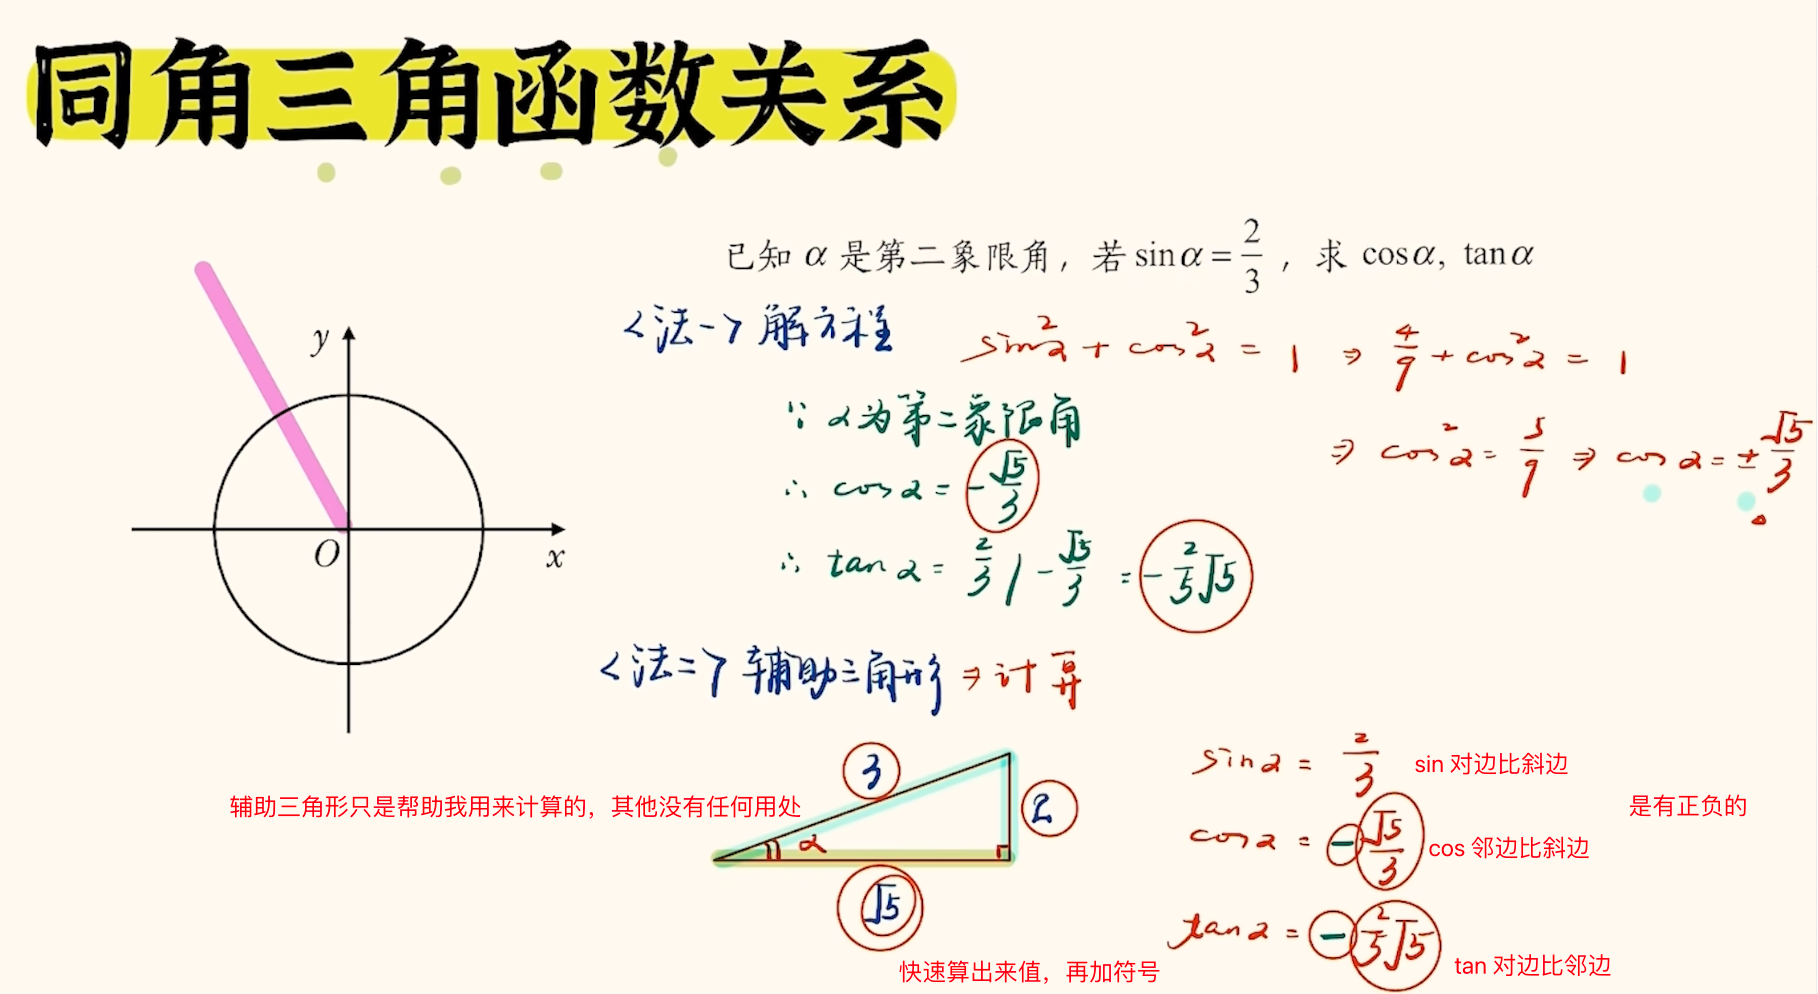 同角三角函数关系
已知 α 是第二象限角，若 sinα = 2/3 ，求 cosα, tanα
<法一> 解方程
sin²α + cos²α = 1 ⇒ 4/9 + cos²α = 1
⇒ cos²α = 5/9 ⇒ cosα = ±√5/3
∵ α为第二象限角
∴ cosα = -√5/3
∴ tanα = 2/3 / -√5/3 = -2/5√5
y
O
x
<法二> 辅助三角形 ⇒ 计算
辅助三角形只是帮助我用来计算的，其他没有任何用处
3
2
α
√5
sinα = 2/3 sin 对边比斜边
是有正负的
cosα = -√5/3 cos 邻边比斜边
tanα = -2/5√5 tan 对边比邻边
快速算出来值，再加符号